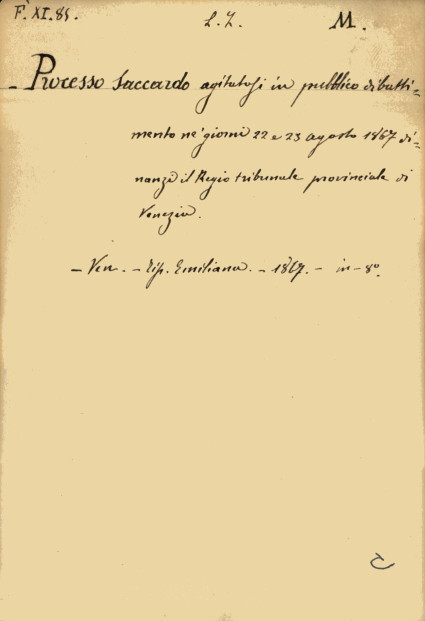 F. XI. 85. L. Z. M.
- Processo Saccardo agitatosi in pubblico dibatti=
mento ne' giorni 22 e 23 agosto 1867 di=
nanzi il Regio tribunale provinciale di
Venezia.
- Ven. - Tip. Emiliana. - 1867. - in - 8º